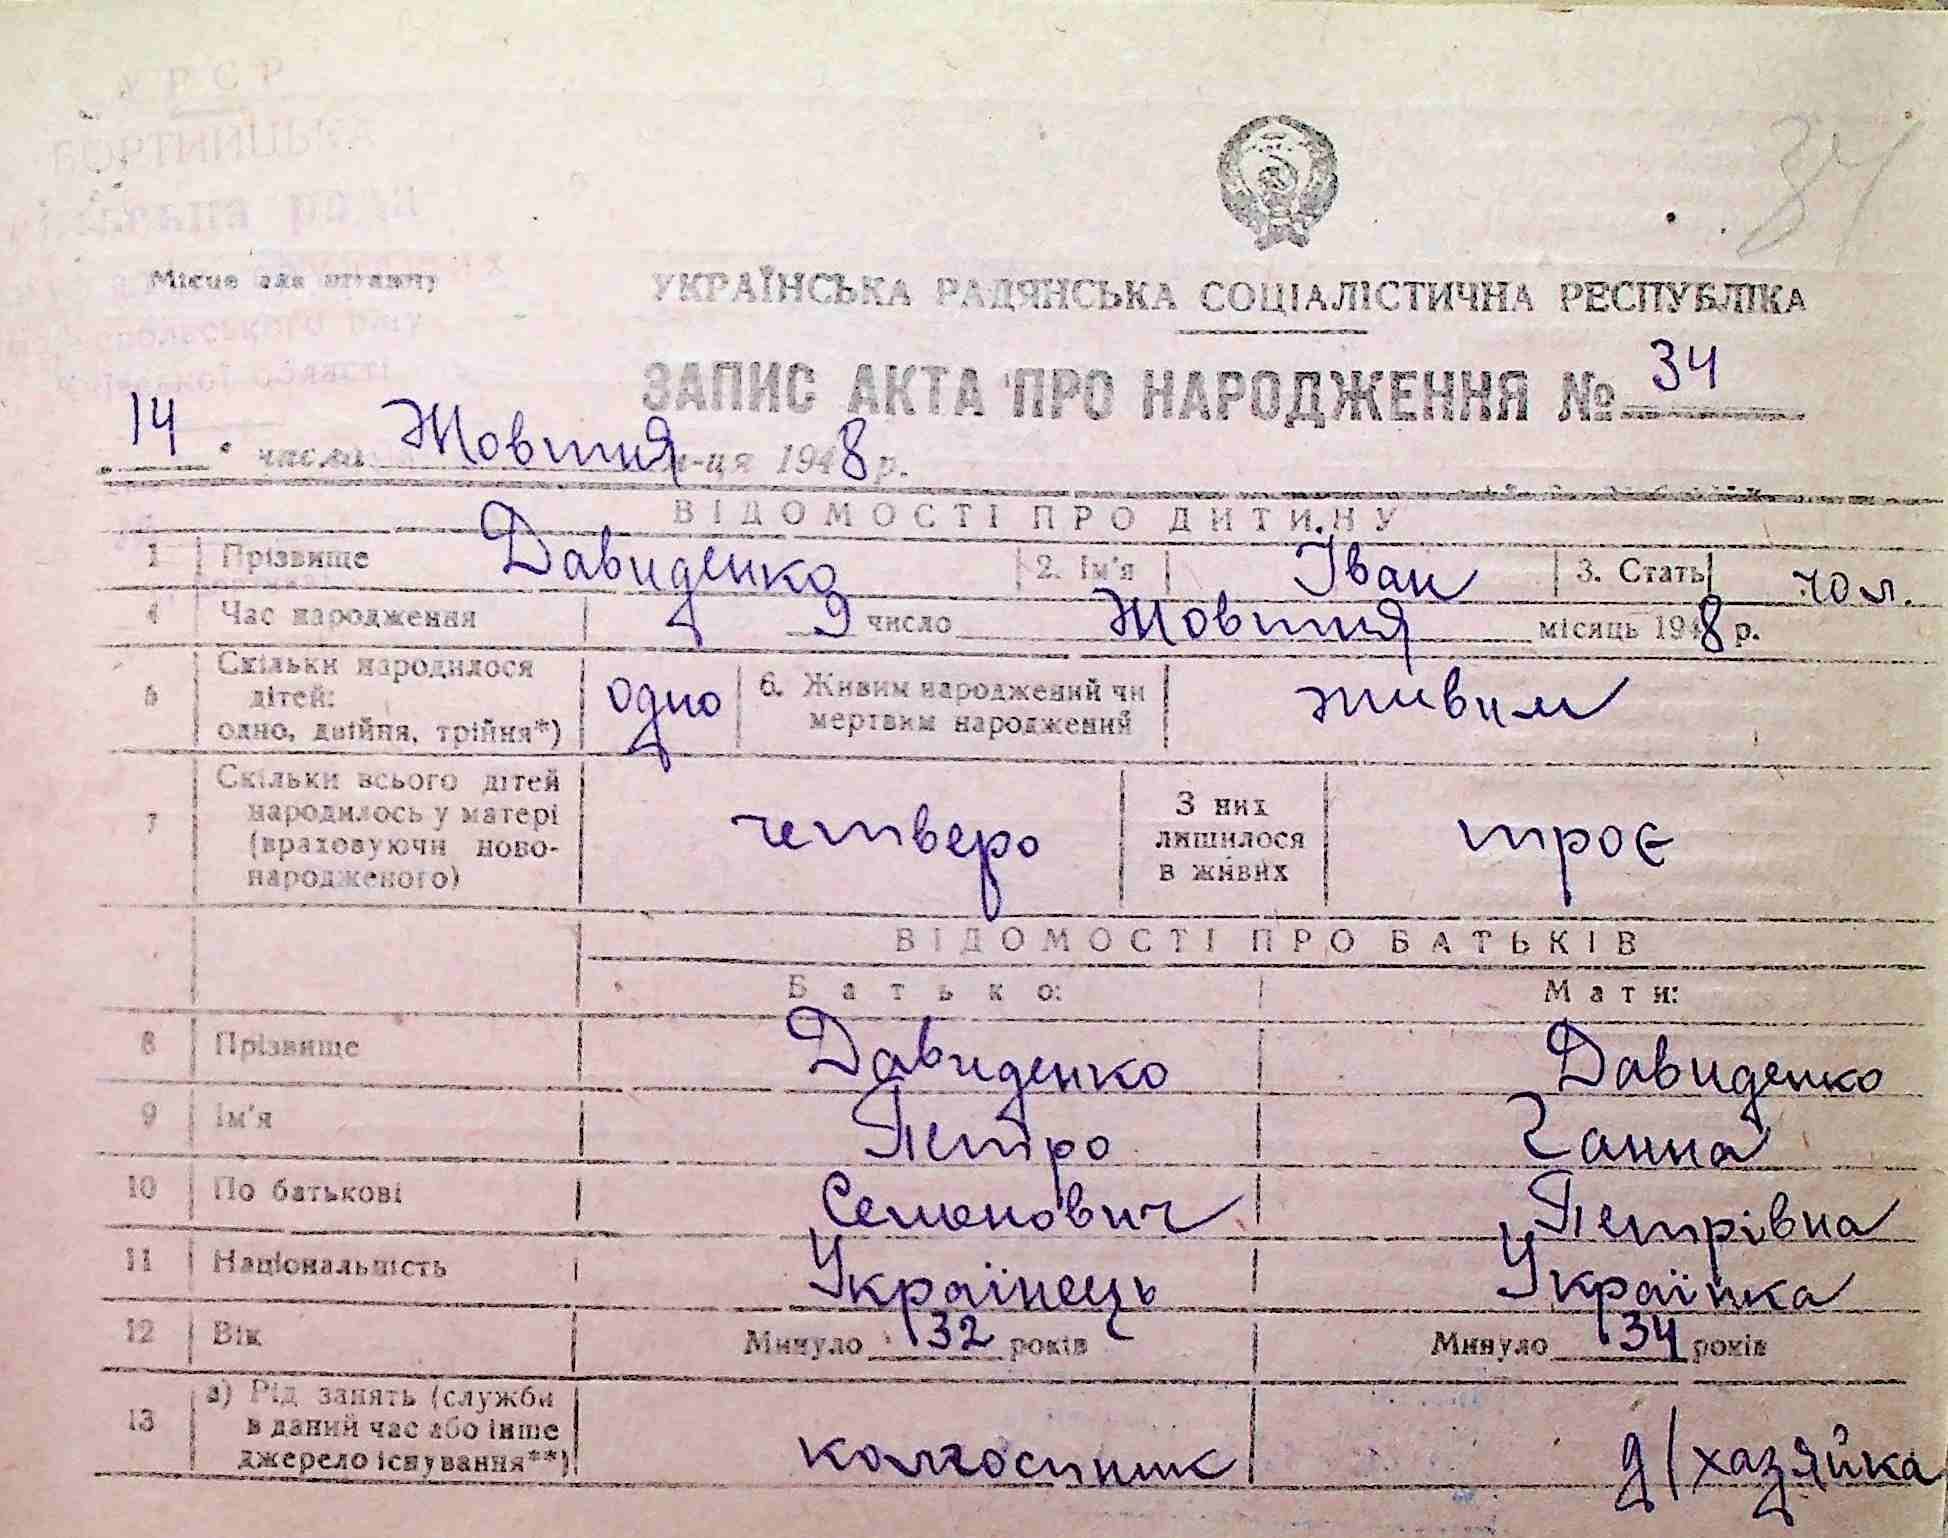 УРСР
БОРТНИЦЬКА
сільська рада
Місце для штампу
області
34
УКРАЇНСЬКА РАДЯНСЬКА СОЦІАЛІСТИЧНА РЕСПУБЛІКА
ЗАПИС АКТА ПРО НАРОДЖЕННЯ № 34
14 числа Жовтня м-ця 1948 р.
ВІДОМОСТІ ПРО ДИТИНУ
1 Прізвище Давиденко 2. Ім'я Іван 3. Стать чол.
4 Час народження 9 число Жовтня місяць 1948 р.
5 Скільки народилося
дітей:
одно, двійня, трійня*) одно 6. Живим народжений чи
мертвим народжений живим
7 Скільки всього дітей
народилось у матері
(враховуючи ново-
народженого) четверо З них
лишилося
в живих троє
ВІДОМОСТІ ПРО БАТЬКІВ
Батько: Мати:
8 Прізвище Давиденко Давиденко
9 Ім'я Петро Ганна
10 По батькові Семенович Петрівна
11 Національність Українець Українка
12 Вік Минуло 32 років Минуло 34 років
13 а) Рід занять (служби
в даний час або інше
джерело існування**) колгоспник д/хазяйка